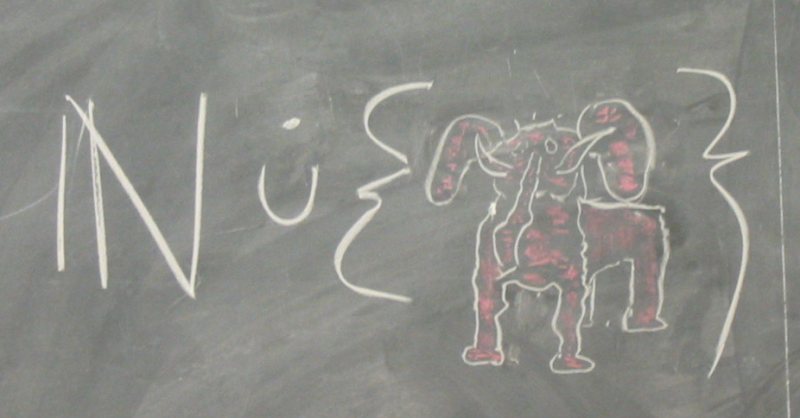 ℕ ∪̇ { }